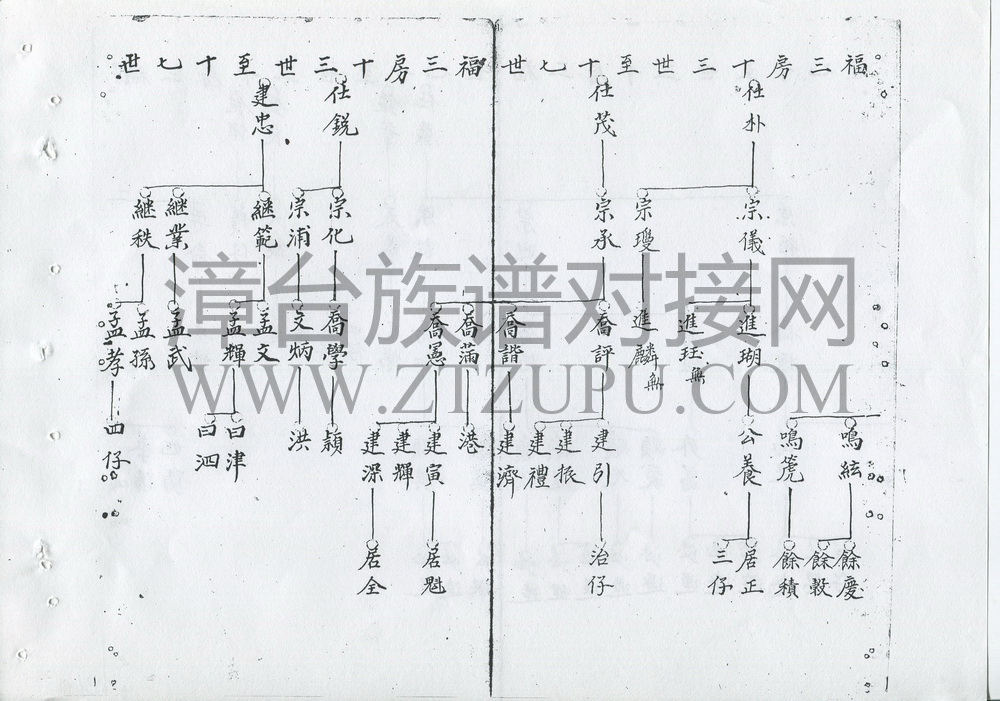 福三房十三世至十七世
仕朴
仕茂
宗儀
宗瓊
宗承
進瑚
進珏無
進麟無
喬評
喬諧
喬蒲
喬憲
鳴絃
鳴篪
公養
建引
建振
建禮
建濟
港
建寅
建輝
建深
餘慶
餘穀
餘積
居正
三仔
治仔
居魁
居全
福三房十三世至十七世
仕銳
建忠
宗化
宗浦
繼範
繼業
繼秩
喬學
文炳
孟文
孟輝
孟武
孟孫
孟孝
穎
洪
曰津
曰泗
四仔
漳台族谱对接网
WWW.ZTZUPU.COM